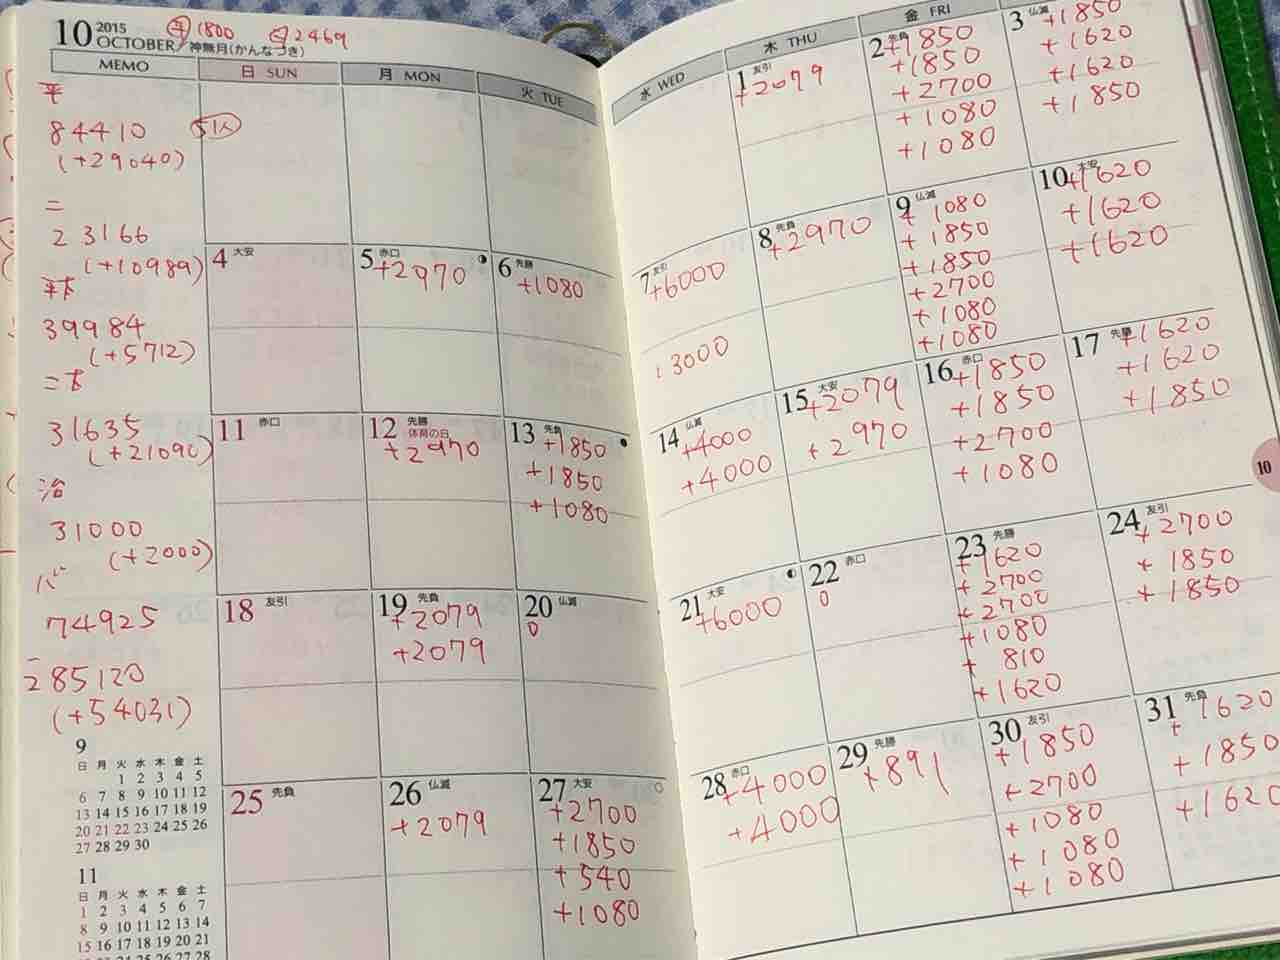 10 2015 OCTOBER/神無月(かんなづき)
平 1800
2469
MEMO
日 SUN
月 MON
火 TUE
水 WED
木 THU
金 FRI
平
84410
51人
(+29040)
二
23166
(+10989)
39984
(+5712)
31635
(+21090)
治
31000
(+2000)
バ
74925
285120
(+54031)
1 友引
+2079
2 先負
+1850
+1850
+2700
+1080
+1080
3
+1850
+1620
+1620
+1850
4 大安
5 赤口
+2970
6 先勝
+1080
7 友引
+6000
13000
8 先負
+2970
9 仏滅
+1080
+1850
+1850
+2700
+1080
+1080
10 大安
+1620
+1620
+1620
11 赤口
12 先勝
体育の日
+2970
13 先負
+1850
+1850
+1080
14 仏滅
+4000
+4000
15 大安
+2079
+2970
16 赤口
+1850
+1850
+2700
+1080
17 先勝
+1620
+1620
+1850
10
18 友引
19 先負
+2079
+2079
20 仏滅
0
21 大安
+6000
22 赤口
0
23 先勝
+1620
+2700
+2700
+1080
+810
+1620
24 友引
+2700
+1850
+1850
25 先負
26 仏滅
+2079
27 大安
+2700
+1850
+540
+1080
28 赤口
+4000
+4000
29 先勝
+891
30 友引
+1850
+2700
+1080
+1080
+1080
31 先負
+1620
+1850
+1620
9
日 月 火 水 木 金 土
1 2 3 4 5
6 7 8 9 10 11 12
13 14 15 16 17 18 19
20 21 22 23 24 25 26
27 28 29 30
11
日 月 火 水 木 金 土
1 2 3 4 5 6 7
8 9 10 11 12 13 14
15 16 17 18 19 20 21